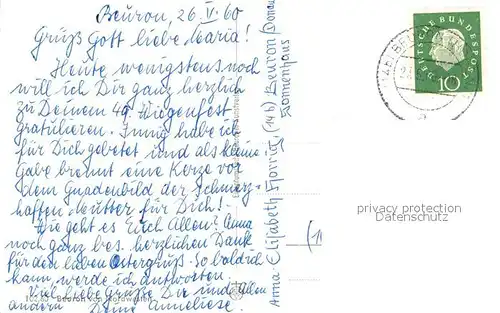 Beuron, 26. V. 60
Grüß Gott liebe Maria!
Heute wenigstens noch
will ich Dir ganz herzlich
zu Deinem 49. Wiegenfest
gratulieren. Innig habe ich
für Dich gebetet und als kleine
Gabe brennt eine Kerze vor
dem Gnadenbild der Schmerz-
haften Mutter für Dich! -
Wie geht es Euch Allen? Anna
noch ganz bes. herzlichen Dank
für den lieben Ostergruß. So bald ich
kann, werde ich antworten.
Viel liebe Grüße Dir und allen
andern Deine Anneliese.
Anna Elisabeth (14b) Beuron/Donau
Sonnenhaus
DEUTSCHE BUNDESPOST
10
privacy protection
Datenschutz
Beuron von Nordwesten